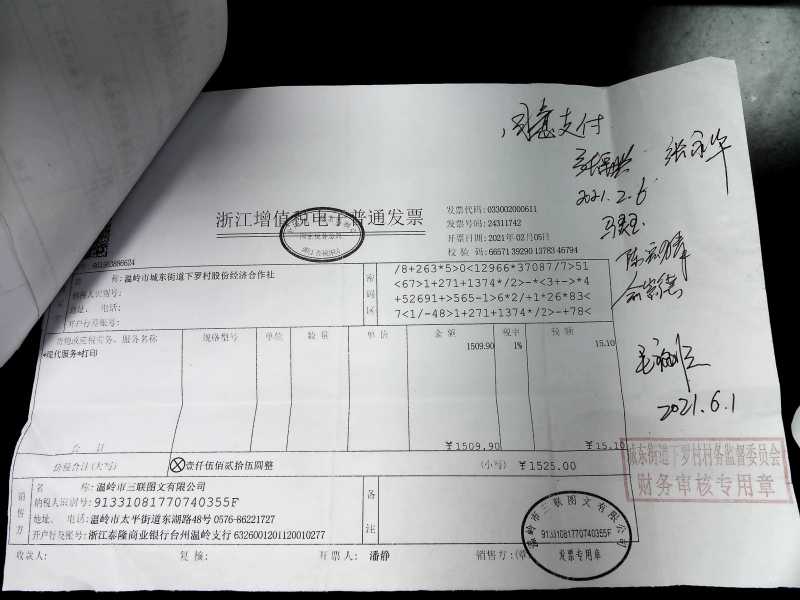 同意支付
2021.2.6
浙江增值税电子普通发票
发票代码: 033002000611
发票号码: 24311742
开票日期: 2021年02月05日
校 验 码: 66571 39290 13783 46794
661963866624
名 称: 温岭市城东街道下罗村股份经济合作社
纳税人识别号:
地址、 电话:
开户行及账号:
密码区
/8+263*5>0<12966*37087/7>51
<67>1+271+1374*/2>-*<3+->*4
+52691+>565-1>6*2/+1*26*83<
7<1/-48>1+271+1374*/2>-+78<
货物或应税劳务、服务名称 规格型号 单位 数 量 单 价 金 额 税率 税 额
*现代服务*打印 1509.90 1% 15.10
2021.6.1
合 计 ￥1509.90 ￥15.10
价税合计(大写) 壹仟伍佰贰拾伍圆整 (小写) ￥1525.00
城东街道下罗村村务监督委员会
财务审核专用章
销售方
名 称: 温岭市三联图文有限公司
纳税人识别号: 91331081770740355F
地址、 电话: 温岭市太平街道东湖路48号 0576-86221727
开户行及账号: 浙江泰隆商业银行台州温岭支行 6326001201120010277
备注
温岭市三联图文有限公司
91331081770740355F
发票专用章
收款人: 复 核: 开 票 人: 潘静 销售方:(章)